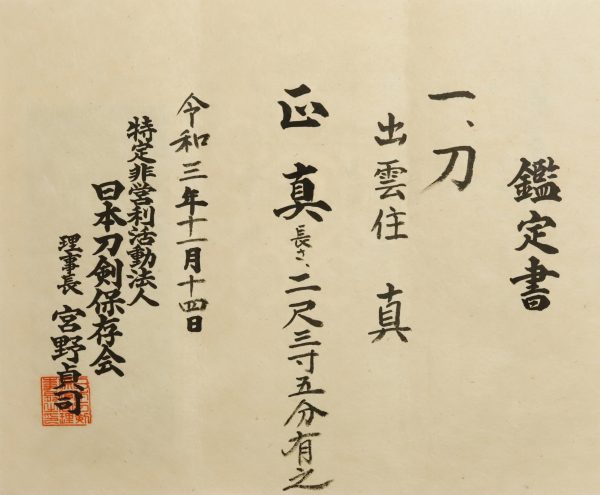 鑑定書
一、刀
出雲住 真
正 真 長さ、二尺三寸五分有之
令和三年十一月十四日
特定非営利活動法人
日本刀剣保存会
理事長 宮野貞司